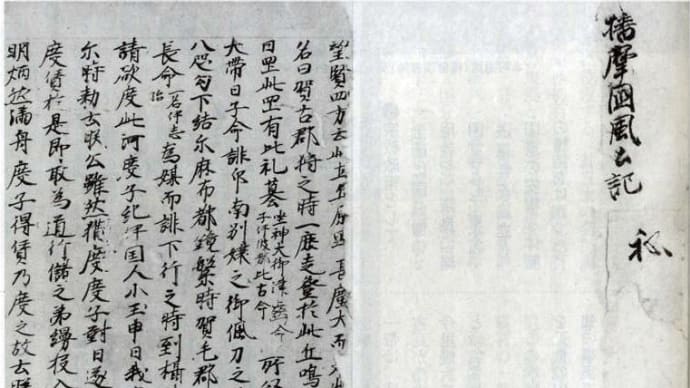 播磨國風土記
秘
望覽四方云此土丘原野甚廣大而
名曰賀古郡狩之時一鹿走登於此丘鳴
日罡此罡有比礼墓 坐神大御津歯命 子伊波都比古命 所
大帯日子命誂印南別嬢之御佩刀之
八咫勾下結尓麻布都鏡繋時賀毛郡
長命 一名伊志治 為媒而誂下行之時到摂
請欲度此河度子紀伊国人小玉申曰我
尓時勅云朕公雖然猶度度子對曰遂
度賃於是即取為道行儲之弟縵投入
明炳然满舟度子得賃乃度之故云